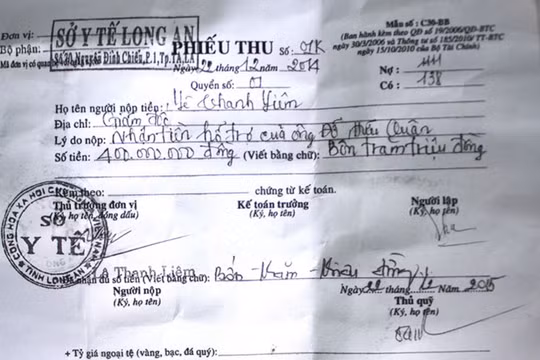 Đơn vị:
SỞ Y TẾ LONG AN
Bộ phận:
Số 70, Nguyễn Đình Chiểu, P.1, Tp.TA, LA
Mã đơn vị có quan hệ
PHIẾU THU Số: 01K
Ngày 22 tháng 12 năm 2014
Quyển số: 01
Mẫu số : C30-BB
(Ban hành kèm theo QĐ số 19/2006/QĐ-BTC
ngày 30/3/2006 và Thông tư số 185/2010/TT-BTC
ngày 15/10/2010 của Bộ Tài Chính)
Nợ :
Có : 138
Họ tên người nộp tiền:
Địa chỉ: Giám đốc
Lý do nộp: Nhận tiền hổ trợ của ông Đỗ Quận
Số tiền: 400.000.000 đồng (Viết bằng chữ): Bốn trăm triệu đồng
Kèm theo: chứng từ kế toán.
Thủ trưởng đơn vị
(Ký, họ tên, đóng dấu)
Kế toán trưởng
(Ký, họ tên)
Người lập
(Ký, họ tên)
CỘNG HÒA XÃ HỘI CHỦ NGHĨA VIỆT NAM
SỞ
Y TẾ
TỈNH LONG AN
Thanh Liêm
Đã nhận đủ số tiền (Viết bằng chữ): Bốn trăm triệu đồng
Người nộp
(Ký, họ tên)
Ngày 22 tháng 12 Năm
Thủ quỹ
(Ký, họ tên)
+ Tỷ giá ngoại tệ (vàng, bạc, đá quý):